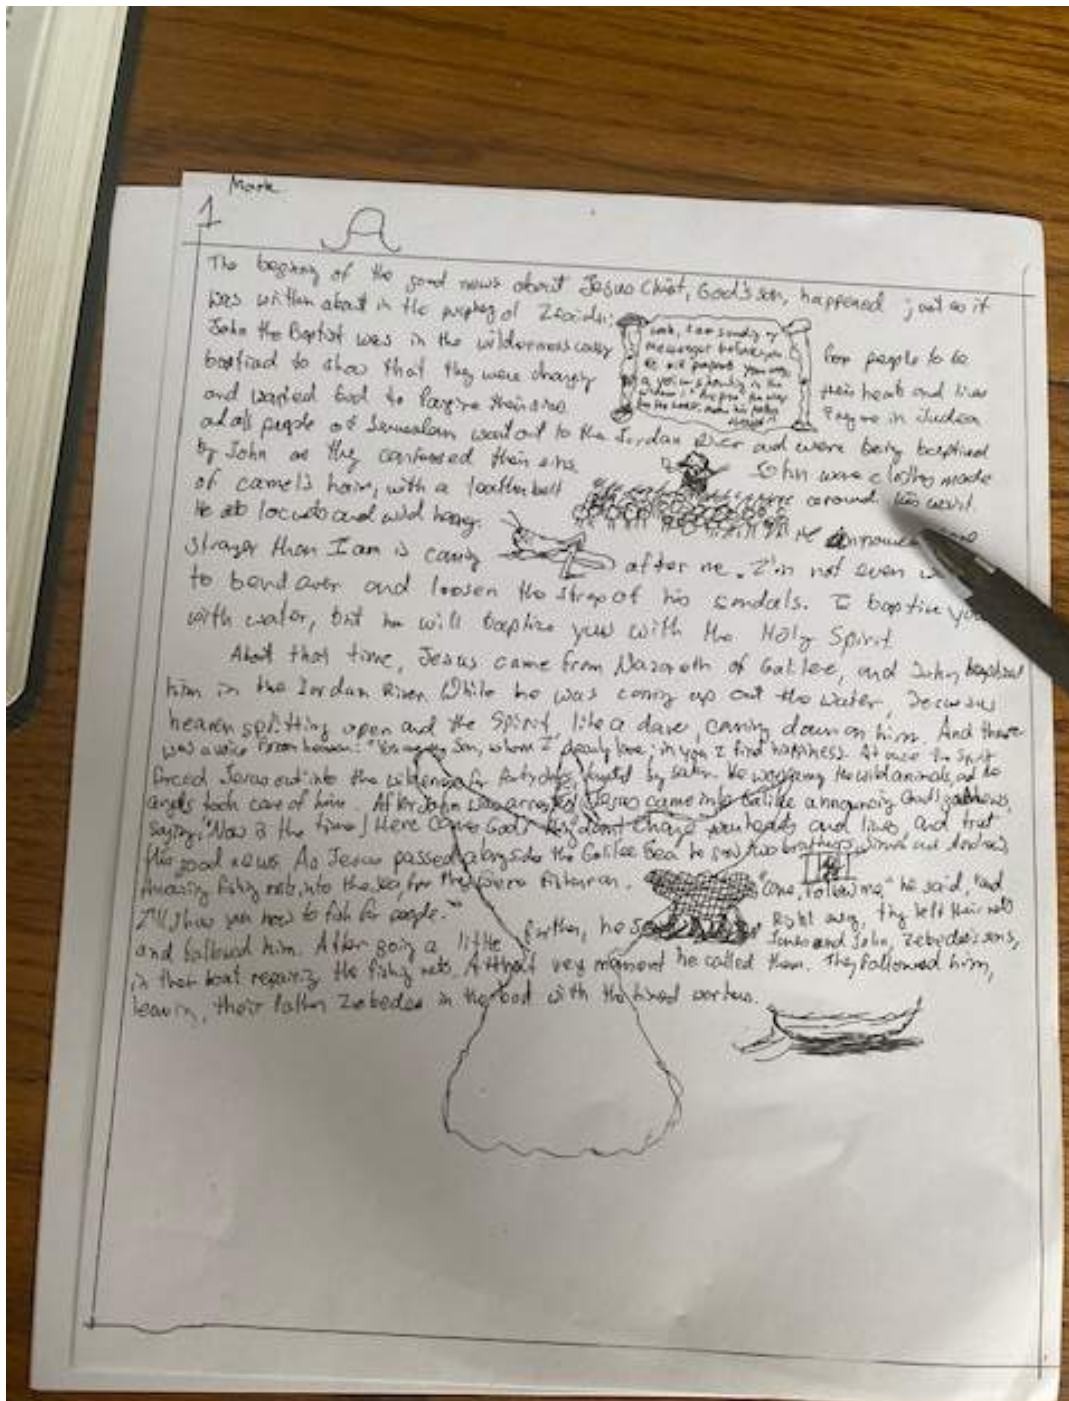 Mark
1
The beginning of the good news about Jesus Christ, God's son, happened just as it
was written about in the prophecy of Isaiah:
Look, I am sending my
messenger before you
He will prepare your way
a voice shouting in the
wilderness: "Prepare the way
for the Lord; make his paths
straight"
John the Baptist was in the wilderness calling for people to be
baptized to show that they were changing their hearts and lives
and wanted God to forgive their sins. Everyone in Judea
and all people of Jerusalem went out to the Jordan River and were being baptized
by John as they confessed their sins. John wore clothes made
of camel's hair, with a leather belt around his waist
He ate locusts and wild honey. He announced one
stronger than I am is coming after me. I'm not even
to bend over and loosen the strap of his sandals. I baptize you
with water, but he will baptize you with the Holy Spirit
About that time, Jesus came from Nazareth of Galilee, and John baptized
him in the Jordan River. While he was coming up out the water, Jesus saw
heaven splitting open and the Spirit, like a dove, coming down on him. And there
was a voice from heaven: "You are my Son, whom I dearly love; in you I find happiness. At once the Spirit
forced Jesus out into the wilderness for forty days, tempted by Satan. He was among the wild animals, and the
angels took care of him. After John was arrested, Jesus came into Galilee announcing God's good news,
saying, "Now is the time! Here comes God's kingdom! Change your hearts and lives, and trust
this good news. As Jesus passed alongside the Galilee Sea he saw two brothers, Simon and Andrew,
throwing fishing nets into the sea, for they were fishermen. "Come, follow me," he said, "and
I'll show you how to fish for people." Right away, they left their nets
and followed him. After going a little further, he saw James and John, Zebedee's sons,
in their boat repairing the fishing nets. At that very moment he called them. They followed him,
leaving their father Zebedee in the boat with the hired workers.